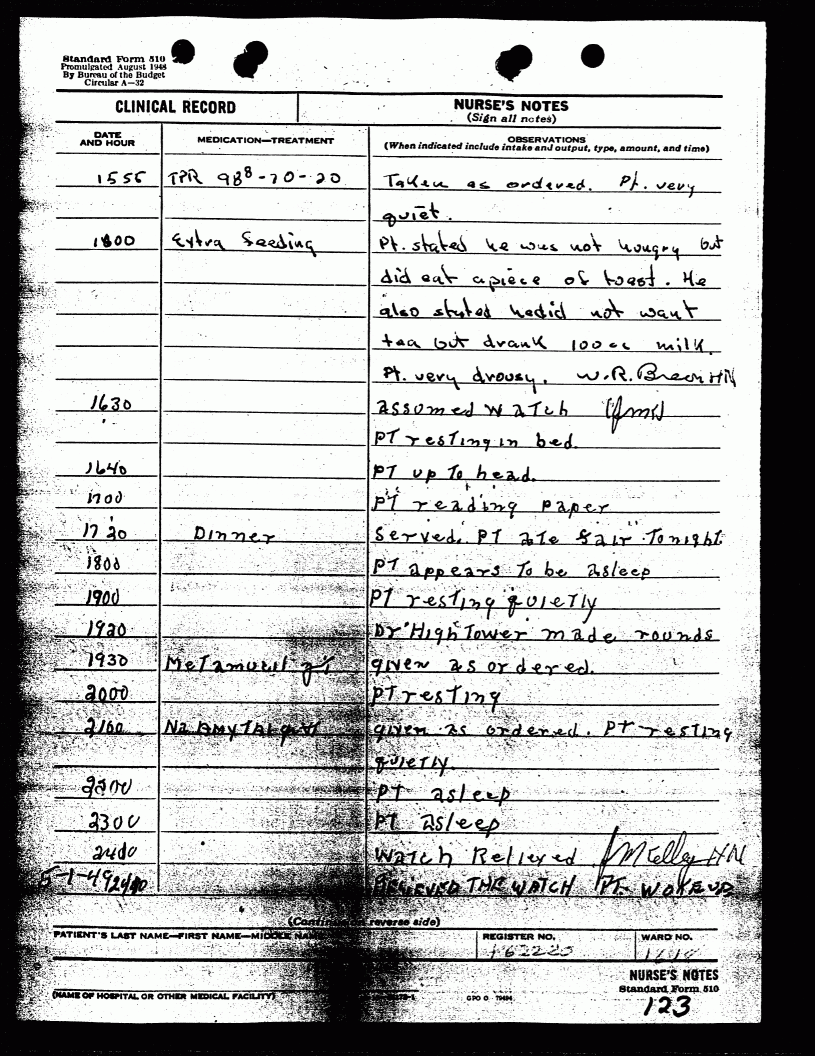 Standard Form 510
Promulgated August 1948
By Bureau of the Budget
Circular A—32
CLINICAL RECORD
NURSE'S NOTES
(Sign all notes)
DATE AND HOUR
MEDICATION—TREATMENT
OBSERVATIONS
(When indicated include intake and output, type, amount, and time)
1555 TPR 98⁸-70-20 Taken as ordered. Pt. very
quiet.
1600 Extra feeding Pt. stated he was not hungry but
did eat a piece of toast. He
also stated he did not want
tea but drank 100cc milk.
Pt. very drousy. W.R. HN
1630 assumed watch
PT resting in bed.
1640 PT up To head.
1700 PT reading paper
1720 Dinner Served. PT ate fair Tonight
1800 PT appears To be asleep
1900 PT resting quietly
1920 Dr HighTower made rounds
1930 Metamucil given as ordered.
2000 PT resting
2100 Na Amytal given as ordered. PT resting
quietly.
2200 PT asleep
2300 PT asleep
2400 Watch Relieved HN
5-1-49 2400 RELIEVED THE WATCH PT. WOKE UP
(Continue on reverse side)
PATIENT'S LAST NAME—FIRST NAME—MIDDLE NAME
REGISTER NO.
WARD NO.
NURSE'S NOTES
Standard Form 510
(NAME OF HOSPITAL OR OTHER MEDICAL FACILITY)
GPO
123